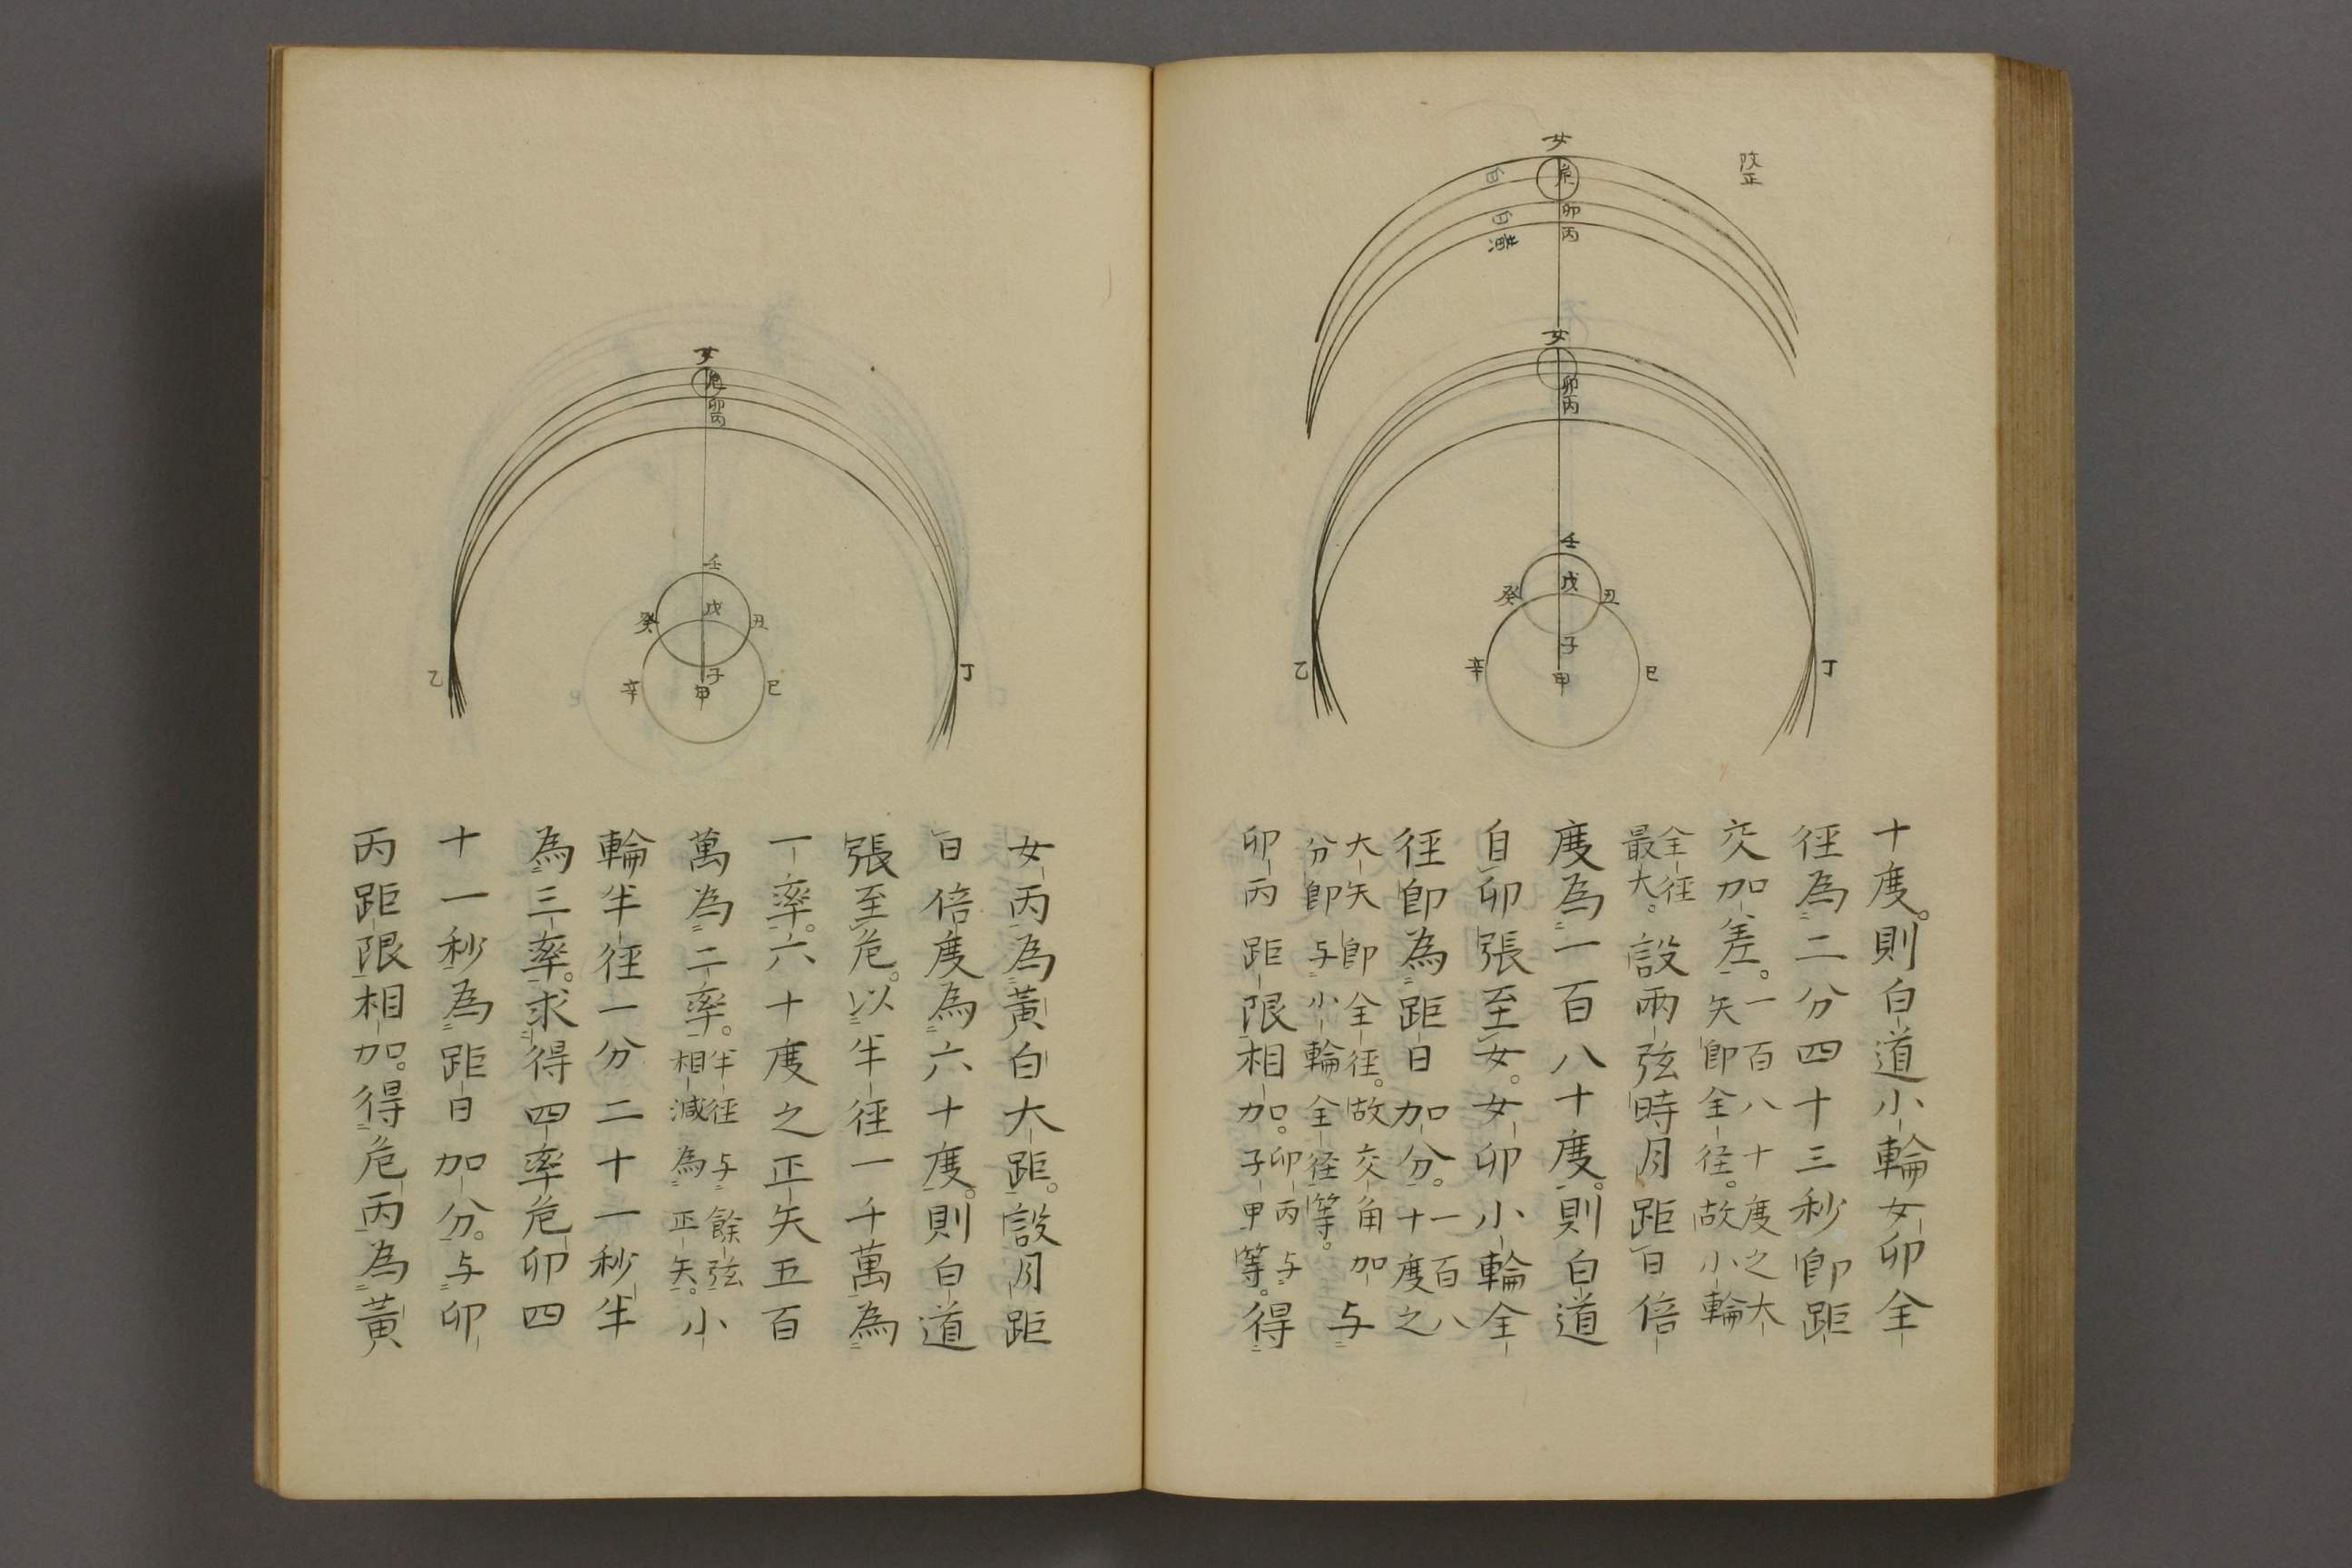 女
危
白
卯
白
丙
黃
女
卯
丙
壬
戊
癸
丑
子
辛
甲
巳
乙
丁
十度。則白道小輪女卯全
徑為二分四十三秒即距
交加差。一百八十度之大
矢即全徑。故小輪
全徑
最大。設兩弦時月距日倍
度為一百八十度。則白道
自卯張至女。女卯小輪全
徑即為距日加分。一百八
十度之
大矢即全徑。故交角加
分即与小輪全徑等。与
卯丙距限相加。卯丙与
子甲等。得
女
危
卯
丙
壬
戊
癸
丑
子
辛
甲
巳
乙
丁
女丙為黃白大距。設月距
日倍度為六十度。則白道
張至危。以半徑一千萬為
一率。六十度之正矢五百
萬為二率。半徑与餘弦
相減為正矢。小
輪半徑一分二十一秒半
為三率。求得四率危卯四
十一秒為距日加分。与卯
丙距限相加。得危丙為黃